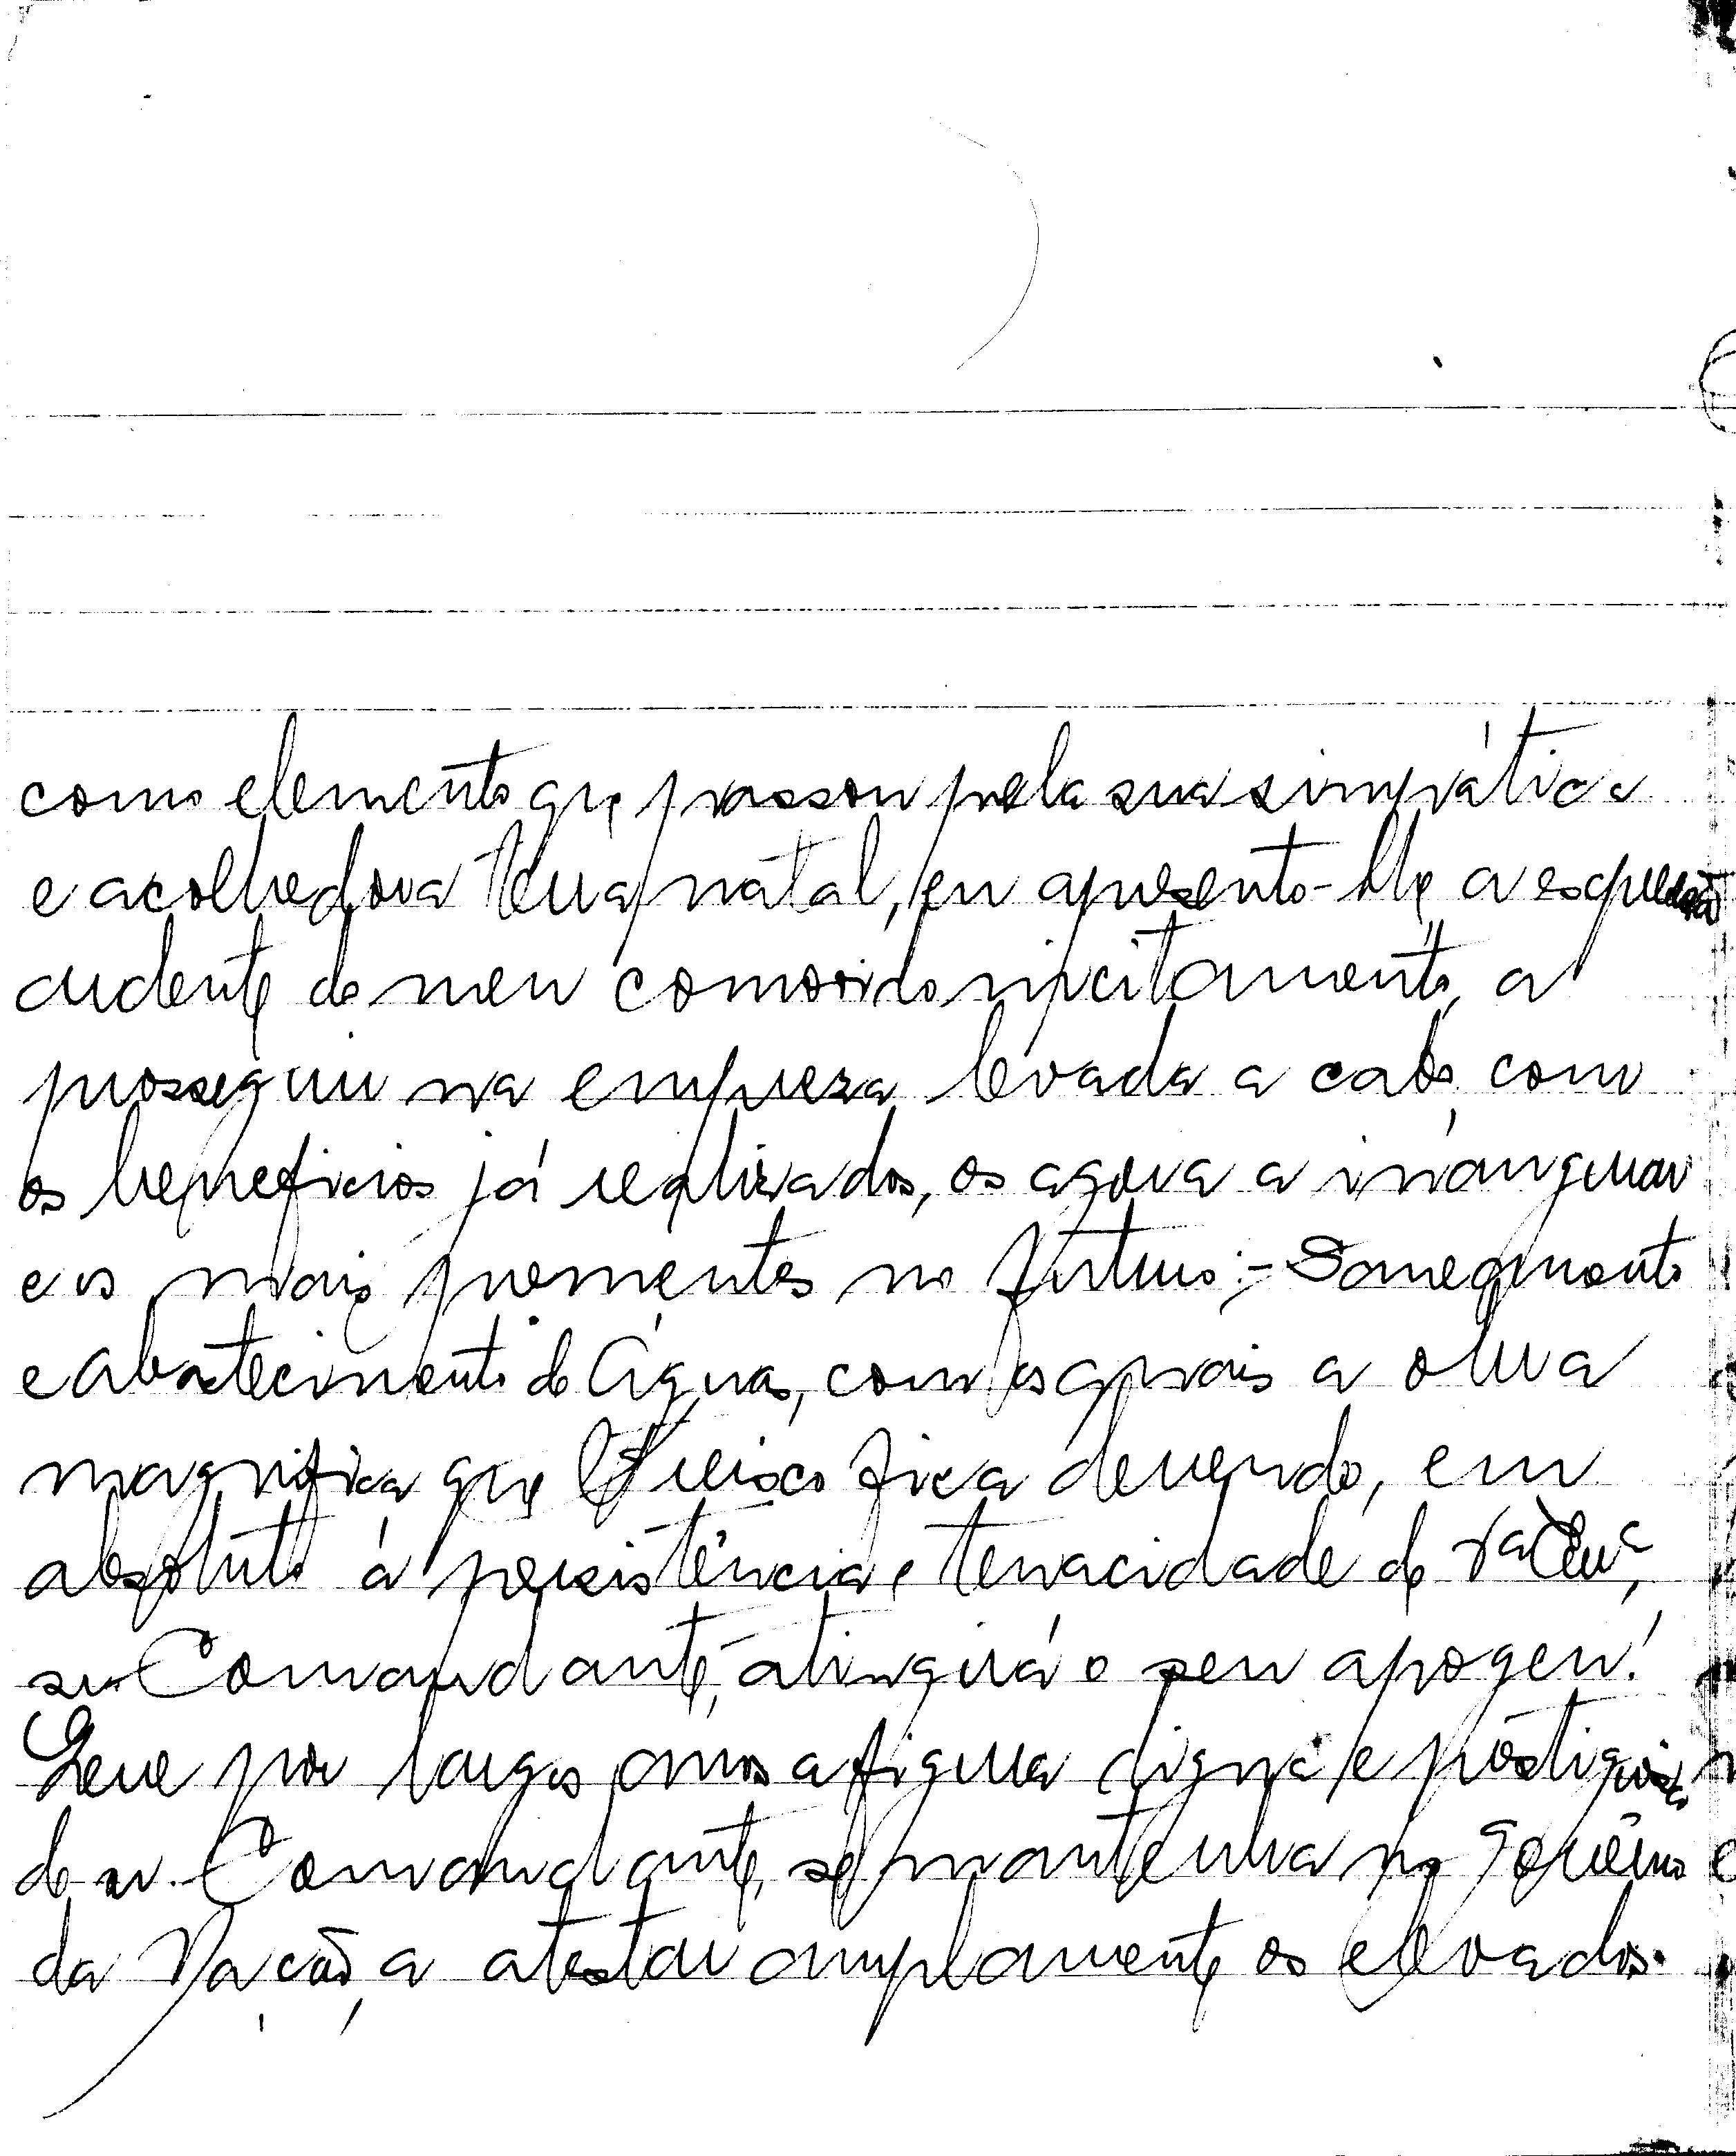 como elemento que passou pela sua simpática
e acolhedora terra natal, eu apresento-lhe a expressão
ardente do meu comovido incitamento, a
prosseguir na empresa levada a cabo, com
os benefícios já realizados, os agora a inaugurar
e os mais prementes no futuro:- Saneamento
e abastecimento de Águas, com os quais a obra
magnifica que fica devendo, em
absoluto á persistência e tenacidade do
sr. Comandante, atingirá o seu apogeu!
por largos anos a figura digna e prestigiosa
do sr. Comandante, se mantenha no Govêrno
da Nação, a atestar amplamente os elevados